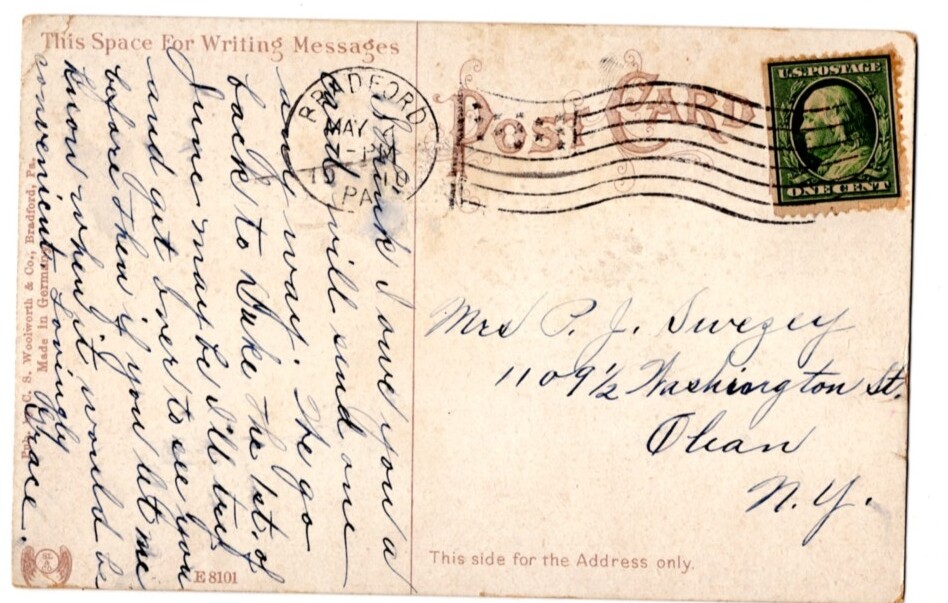 This Space For Writing Messages
POST CARD
U.S. POSTAGE
ONE CENT
BRADFORD
MAY
PA.
Think I owe you a
card will send one
any way. We go
back to Duke the 1st. of
June may be I'll try
and get over to see you
before then if you let me
know when it would be
convenient Lovingly
Grace.
Pub. by C. S. Woolworth & Co., Bradford, Pa.
Made in Germany
E 8101
Mrs P. J. Swezey
1109 1/2 Washington St.
Olean
N.Y.
This side for the Address only.